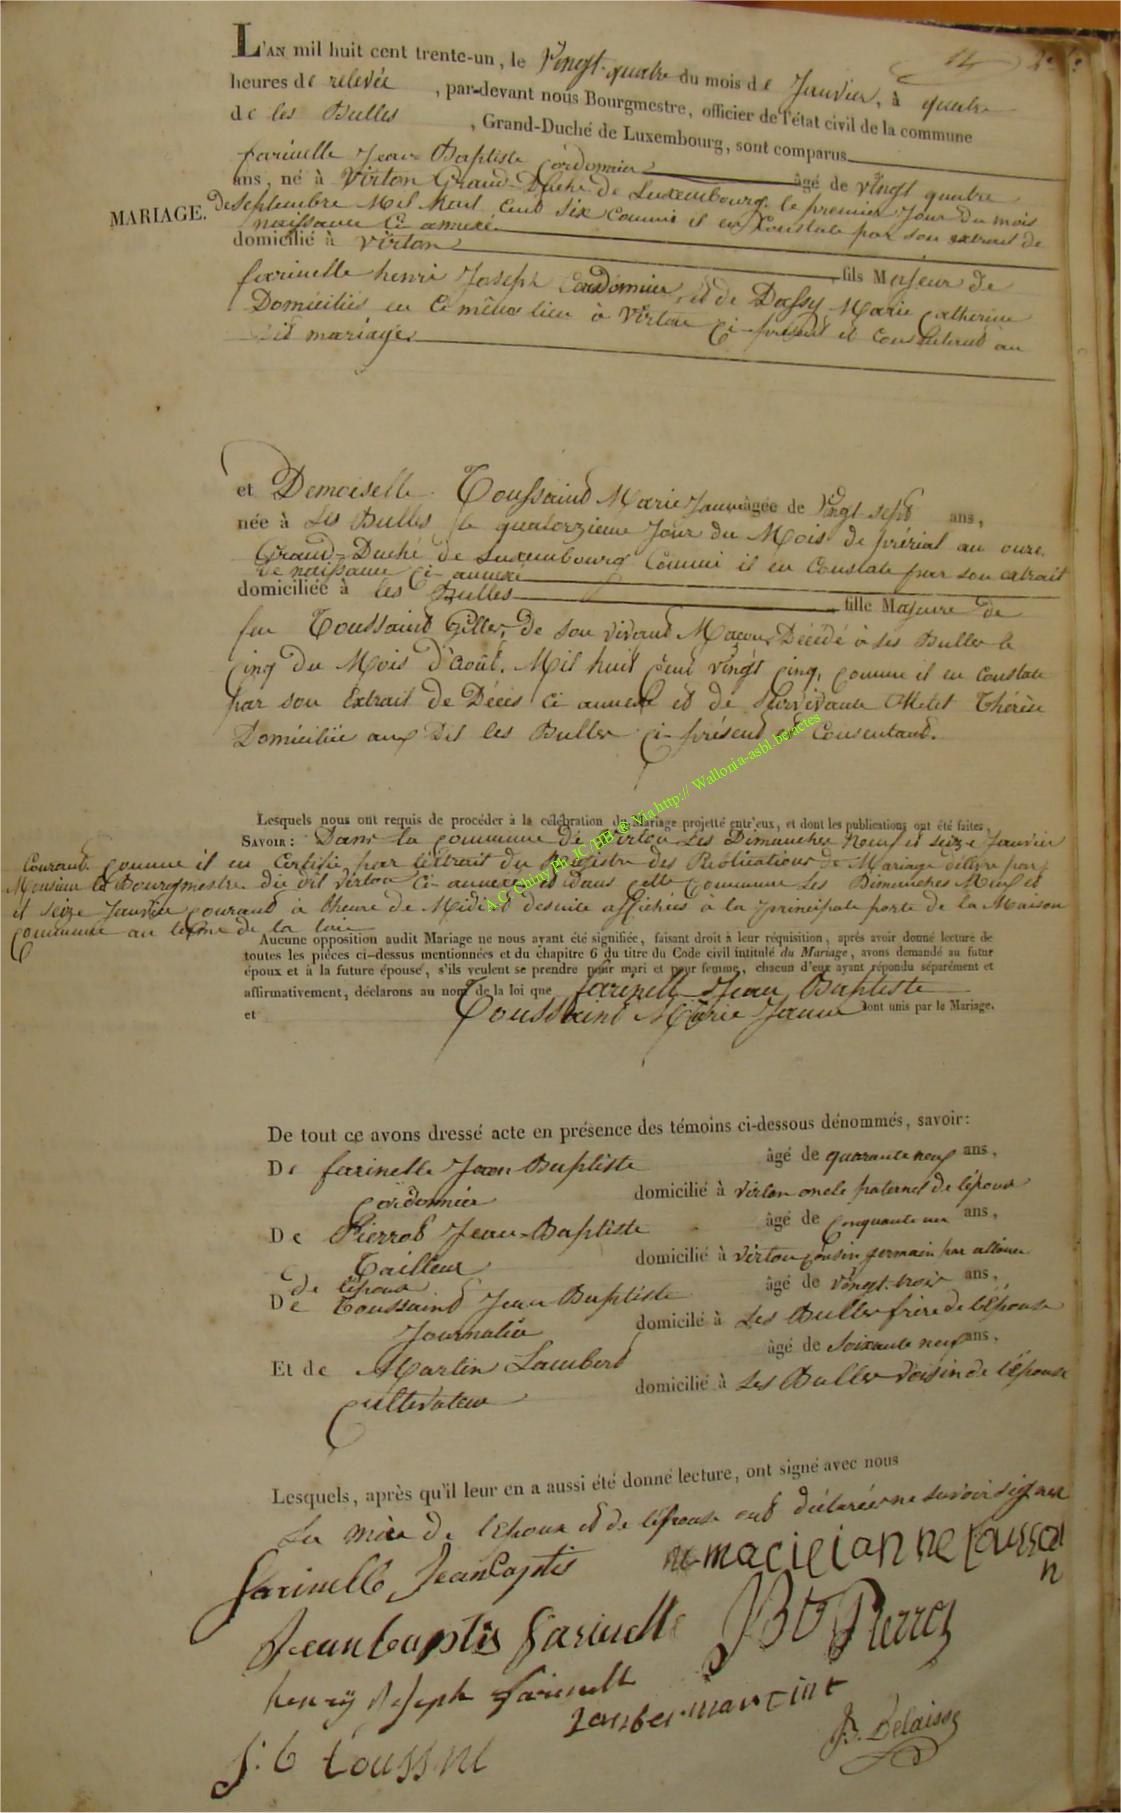 14
L'AN mil huit cent trente-un, le Vingt-quatre du mois de Janvier, à quatre
heures de relevée, par-devant nous Bourgmestre, officier de l'état civil de la commune
de les Bulles, Grand-Duché de Luxembourg, sont comparus
farinelle Jean Baptiste Cordonnier âgé de vingt quatre
ans, né à Virton Grand-Duché de Luxembourg le premier Jour du mois
MARIAGE. De Septembre Mil huit Cent Six Comme il en Constate par son extrait de
naissance Ci annexé
domicilié à Virton fils Majeur de
farinelle henri Joseph Cordonnier et de Dassy Marie Catherine
Domiciliés en Ce même lieu à Virton Ci-présent et Consentent au
dit mariage.
et Demoiselle Toussaint Marie Janne âgée de vingt sept ans,
née à Les Bulles le quatorzieme Jour du Mois de prérial an onze
Grand-Duché de Luxembourg Comme il en Constate par son extrait
de naissance Ci-annexé
domiciliée à les Bulles fille Majeure de
feu Toussaint Gilles, de son vivant Maçon, Décédé à les Bulles le
Cinq du Mois d'Août, Mil huit Cent vingt Cinq, Comme il en Constate
par son Extrait de Décès Ci annexé et de Survivante Thérèse
Domiciliée aux Dit les Bulles Ci-présent et Consentant.
Lesquels nous ont requis de procéder à la célébration du Mariage projetté entr'eux, et dont les publications ont été faites,
SAVOIR: Dans la Commune de Virton Les Dimanches Neuf et seize Janvier
Courant Comme il en Certifie par l'extrait du Registre des Publications de Mariage délivré par
Monsieur le Bourgmestre du dit Virton Ci-annexé et dans cette Commune Les Dimanches Neuf et
et seize Janvier Courant à l'heure de Midi et desuite affichées a la principale porte de la Maison
Commune au terme de la loi
Aucune opposition audit Mariage ne nous ayant été signifiée, faisant droit à leur réquisition, après avoir donné lecture de
toutes les pièces ci-dessus mentionnées et du chapitre 6 du titre du Code civil intitulé du Mariage, avons demandé au futur
époux et à la future épouse, s'ils veulent se prendre pour mari et pour femme, chacun d'eux ayant répondu séparément et
affirmativement, déclarons au nom de la loi que farinelle Jean Baptiste
et Toussaint Marie Janne sont unis par le Mariage.
De tout ce avons dressé acte en présence des témoins ci-dessous dénommés, savoir:
De farinelle Jean Baptiste âgé de quarante neuf ans,
Cordonnier domicilié à Virton oncle paternel de l'époux
De Pierrot Jean-Baptiste âgé de Cinquante un ans,
Tailleur domicilié à Virton Cousin germain par alliance
de l'époux
De Toussaint Jean Baptiste âgé de vingt-trois ans,
Journalier domicilié à Les Bulles frère de l'Epouse
Et de Martin Lambert âgé de Soixante neuf ans,
Cultivateur domicilié à Les Bulles Voisin de l'Epouse
Lesquels, après qu'il leur en a aussi été donné lecture, ont signé avec nous
La mère de l'Epoux et de l'épouse ont déclarées ne savoir signer
Farinelle Jean Baptis
Jean baptis farinelle JBte Pierrot
henry Joseph farinelle
Lamber martint
J: b toussint
A.C Chiny Ph JC/HB @ Via http:// Wallonia-asbl.be/actes